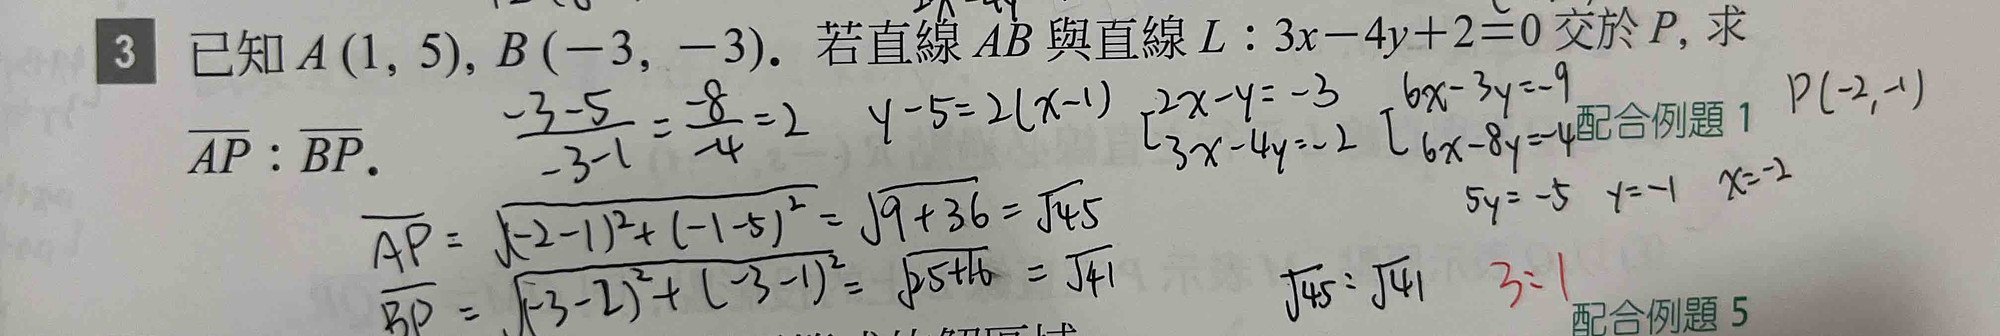 3 已知 A (1, 5), B (－3, －3). 若直線 AB 與直線 L：3x－4y+2=0 交於 P, 求
AP : BP.
-3-5/-3-1 = -8/-4 = 2
y-5=2(x-1)
2x-y=-3
3x-4y=-2
6x-3y=-9
6x-8y=-4
配合例題 1
P(-2,-1)
5y=-5 y=-1 x=-2
AP = √(-2-1)²+(-1-5)² = √9+36 = √45
BP = √(-3-2)²+(-3-1)² = √25+16 = √41
√45:√41 3:1
配合例題 5